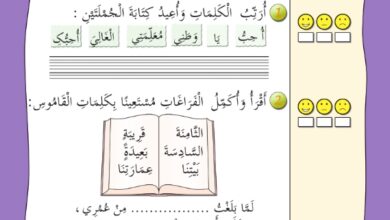 1 أُرَتِّبُ الْكَلِمَاتِ وَأُعِيدُ كِتَابَةَ الْجُمْلَتَيْنِ :
أُحِبُّ يَا وَطَنِي مُعَلِّمَتِي الْغَالِيَ أُحِبُّكِ
2 أَقْرَأُ وَأُكَمِّلُ الْفَرَاغَاتِ مُسْتَعِينًا بِكَلِمَاتِ الْقَامُوسِ:
الثَّامِنَةَ قَرِيبَةٌ
السَّادِسَةَ بَعِيدَةٌ
بَيْتِنَا عِمَارَتِنَا
لَمَّا بَلَغْتُ ................ مِنْ عُمْرِي ،